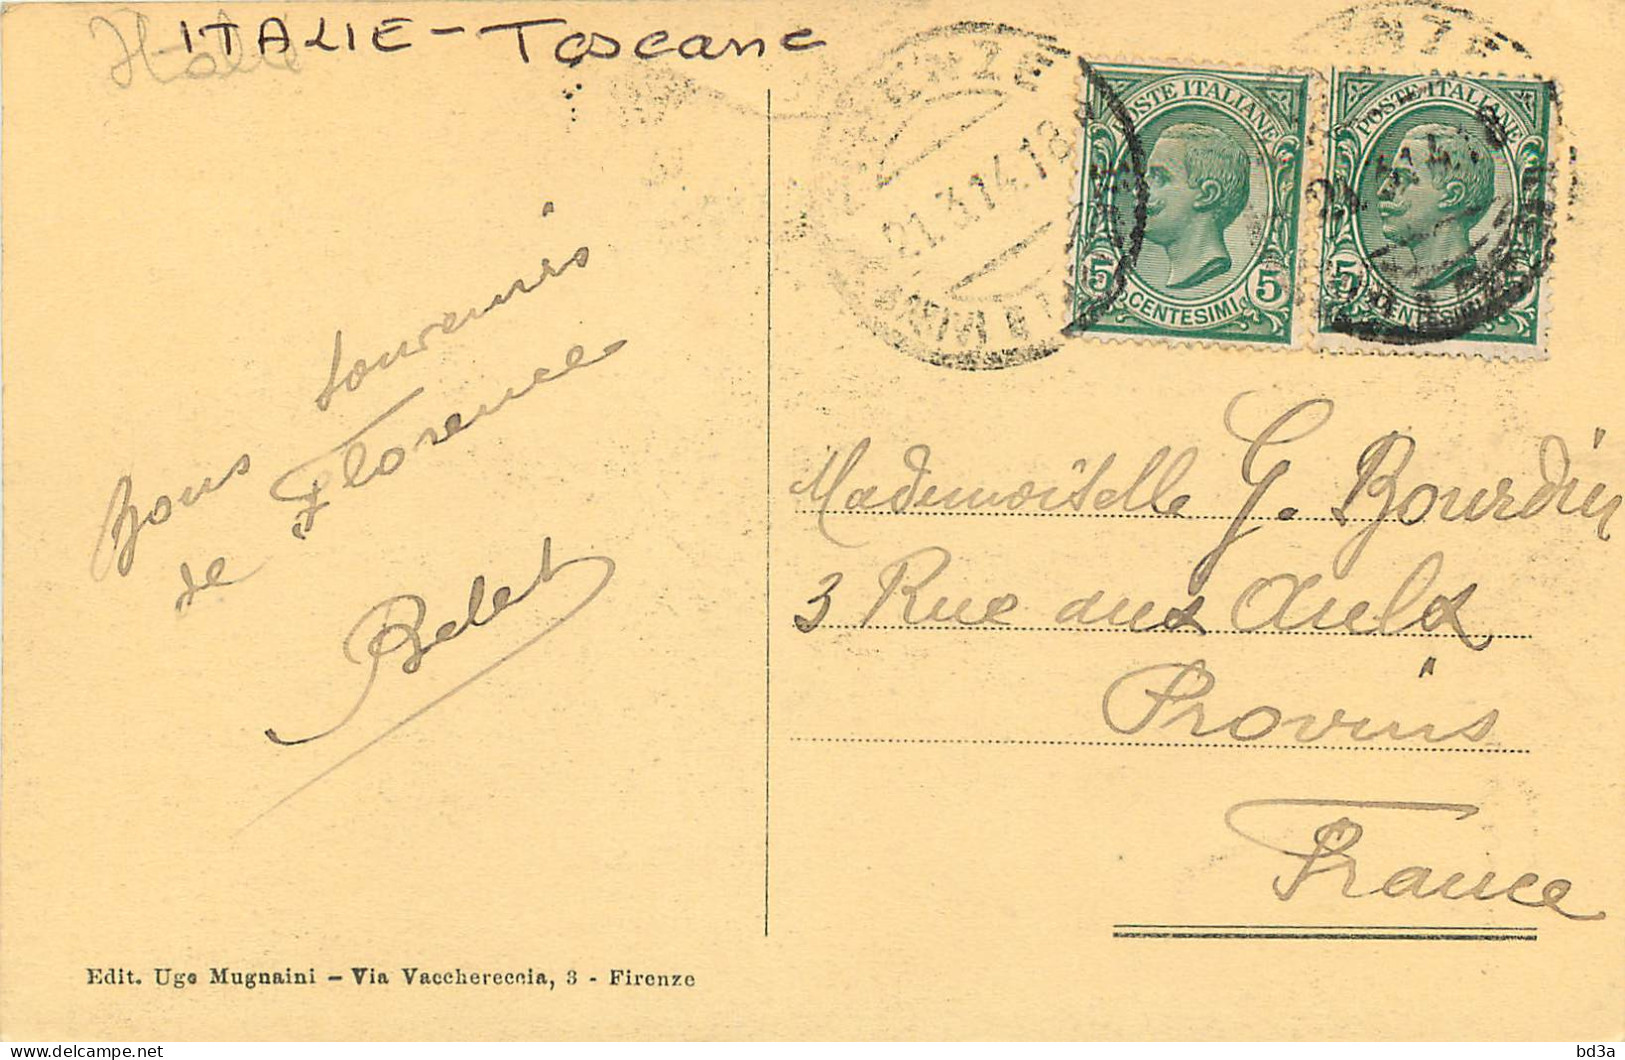 ITALIE - Toscane
FIRENZE
21.3.14.18
POSTE ITALIANE
5 5
CENTESIMI
POSTE ITALIANE
5
CENTESIMI
Bons souvenirs
de Florence
Mademoiselle G. Bourdin
3 Rue aux Aulx
Provins
France
Edit. Ugo Mugnaini – Via Vacchereccia, 3 - Firenze
bd3a